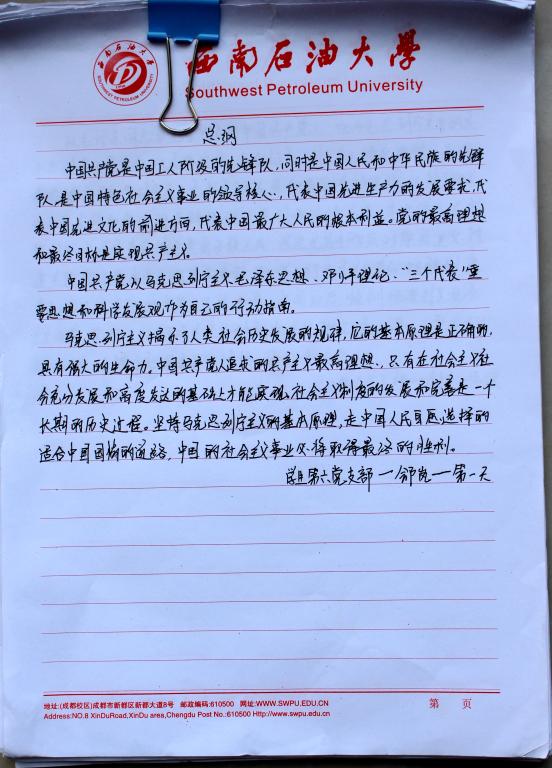 西南石油大學
Southwest Petroleum University
总纲
中国共产党是中国工人阶级的先锋队,同时是中国人民和中华民族的先锋
队,是中国特色社会主义事业的领导核心,代表中国先进生产力的发展要求,代
表中国先进文化的前进方向,代表中国最广大人民的根本利益。党的最高理想
和最终目标是实现共产主义。
中国共产党以马克思列宁主义、毛泽东思想、邓小平理论、“三个代表”重
要思想和科学发展观作为自己的行动指南。
马克思列宁主义揭示了人类社会历史发展的规律,它的基本原理是正确的,
具有强大的生命力。中国共产党人追求的共产主义最高理想,只有在社会主义社
会充分发展和高度发达的基础上才能实现。社会主义制度的发展和完善是一个
长期的历史过程。坚持马克思列宁主义的基本原理,走中国人民自愿选择的
适合中国国情的道路,中国的社会主义事业必将取得最终的胜利。
第六党支部一邹 一第一天
地址:(成都校区)成都市新都区新都大道8号 邮政编码:610500 网址:WWW.SWPU.EDU.CN
Address:NO.8 XinDuRoad,XinDu area,Chengdu Post No.:610500 Http://www.swpu.edu.cn
第 页